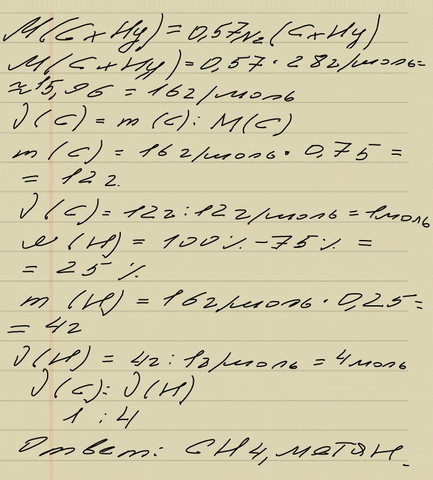 M(CxHy)=0,57N2(CxHy)
M(CxHy)=0,57·28г/моль=
≈15,96=16г/моль
ν(C)=m(C):M(C)
m(C)=16г/моль·0,75=
=12г.
ν(C)=12г:12г/моль=1моль
ω(H)=100%-75%=
=25%
m(H)=16г/моль·0,25=
=4г
ν(H)=4г:1г/моль=4моль
ν(C):ν(H)
1:4
Ответ: CH4, метан.